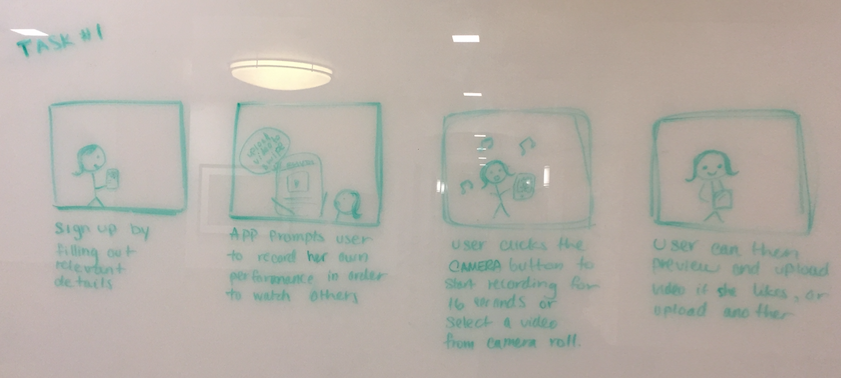 TASK #1
Sign up by
filling out
relevant
details
APP Prompts user
to record her own
performance in order
to watch others
user clicks the
CAMERA button to
start recording for
16 seconds or
select a video
from camera roll.
User can then
preview and upload
video if she likes, or
upload another